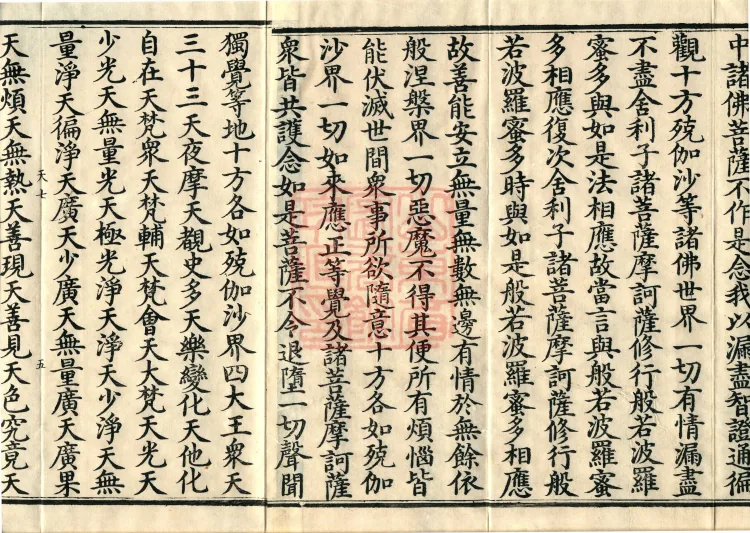 中諸佛菩薩不作是念我以漏盡智證通徧
觀十方殑伽沙等諸佛世界一切有情漏盡
不盡舍利子諸菩薩摩訶薩修行般若波羅
蜜多與如是法相應故當言與般若波羅蜜
多相應復次舍利子諸菩薩摩訶薩修行般
若波羅蜜多時與如是般若波羅蜜多相應
故善能安立無量無數無邊有情於無餘依
般涅槃界一切惡魔不得其便所有煩惱皆
能伏滅世間衆事所欲隨意十方各如殑伽
沙界一切如來應正等覺及諸菩薩摩訶薩
衆皆共護念如是菩薩不令退墮一切聲聞
獨覺等地十方各如殑伽沙界四大王衆天
三十三天夜摩天覩史多天樂變化天他化
自在天梵衆天梵輔天梵會天大梵天光天
少光天無量光天極光淨天淨天少淨天無
量淨天徧淨天廣天少廣天無量廣天廣果
天七
五
天無煩天無熱天善現天善見天色究竟天